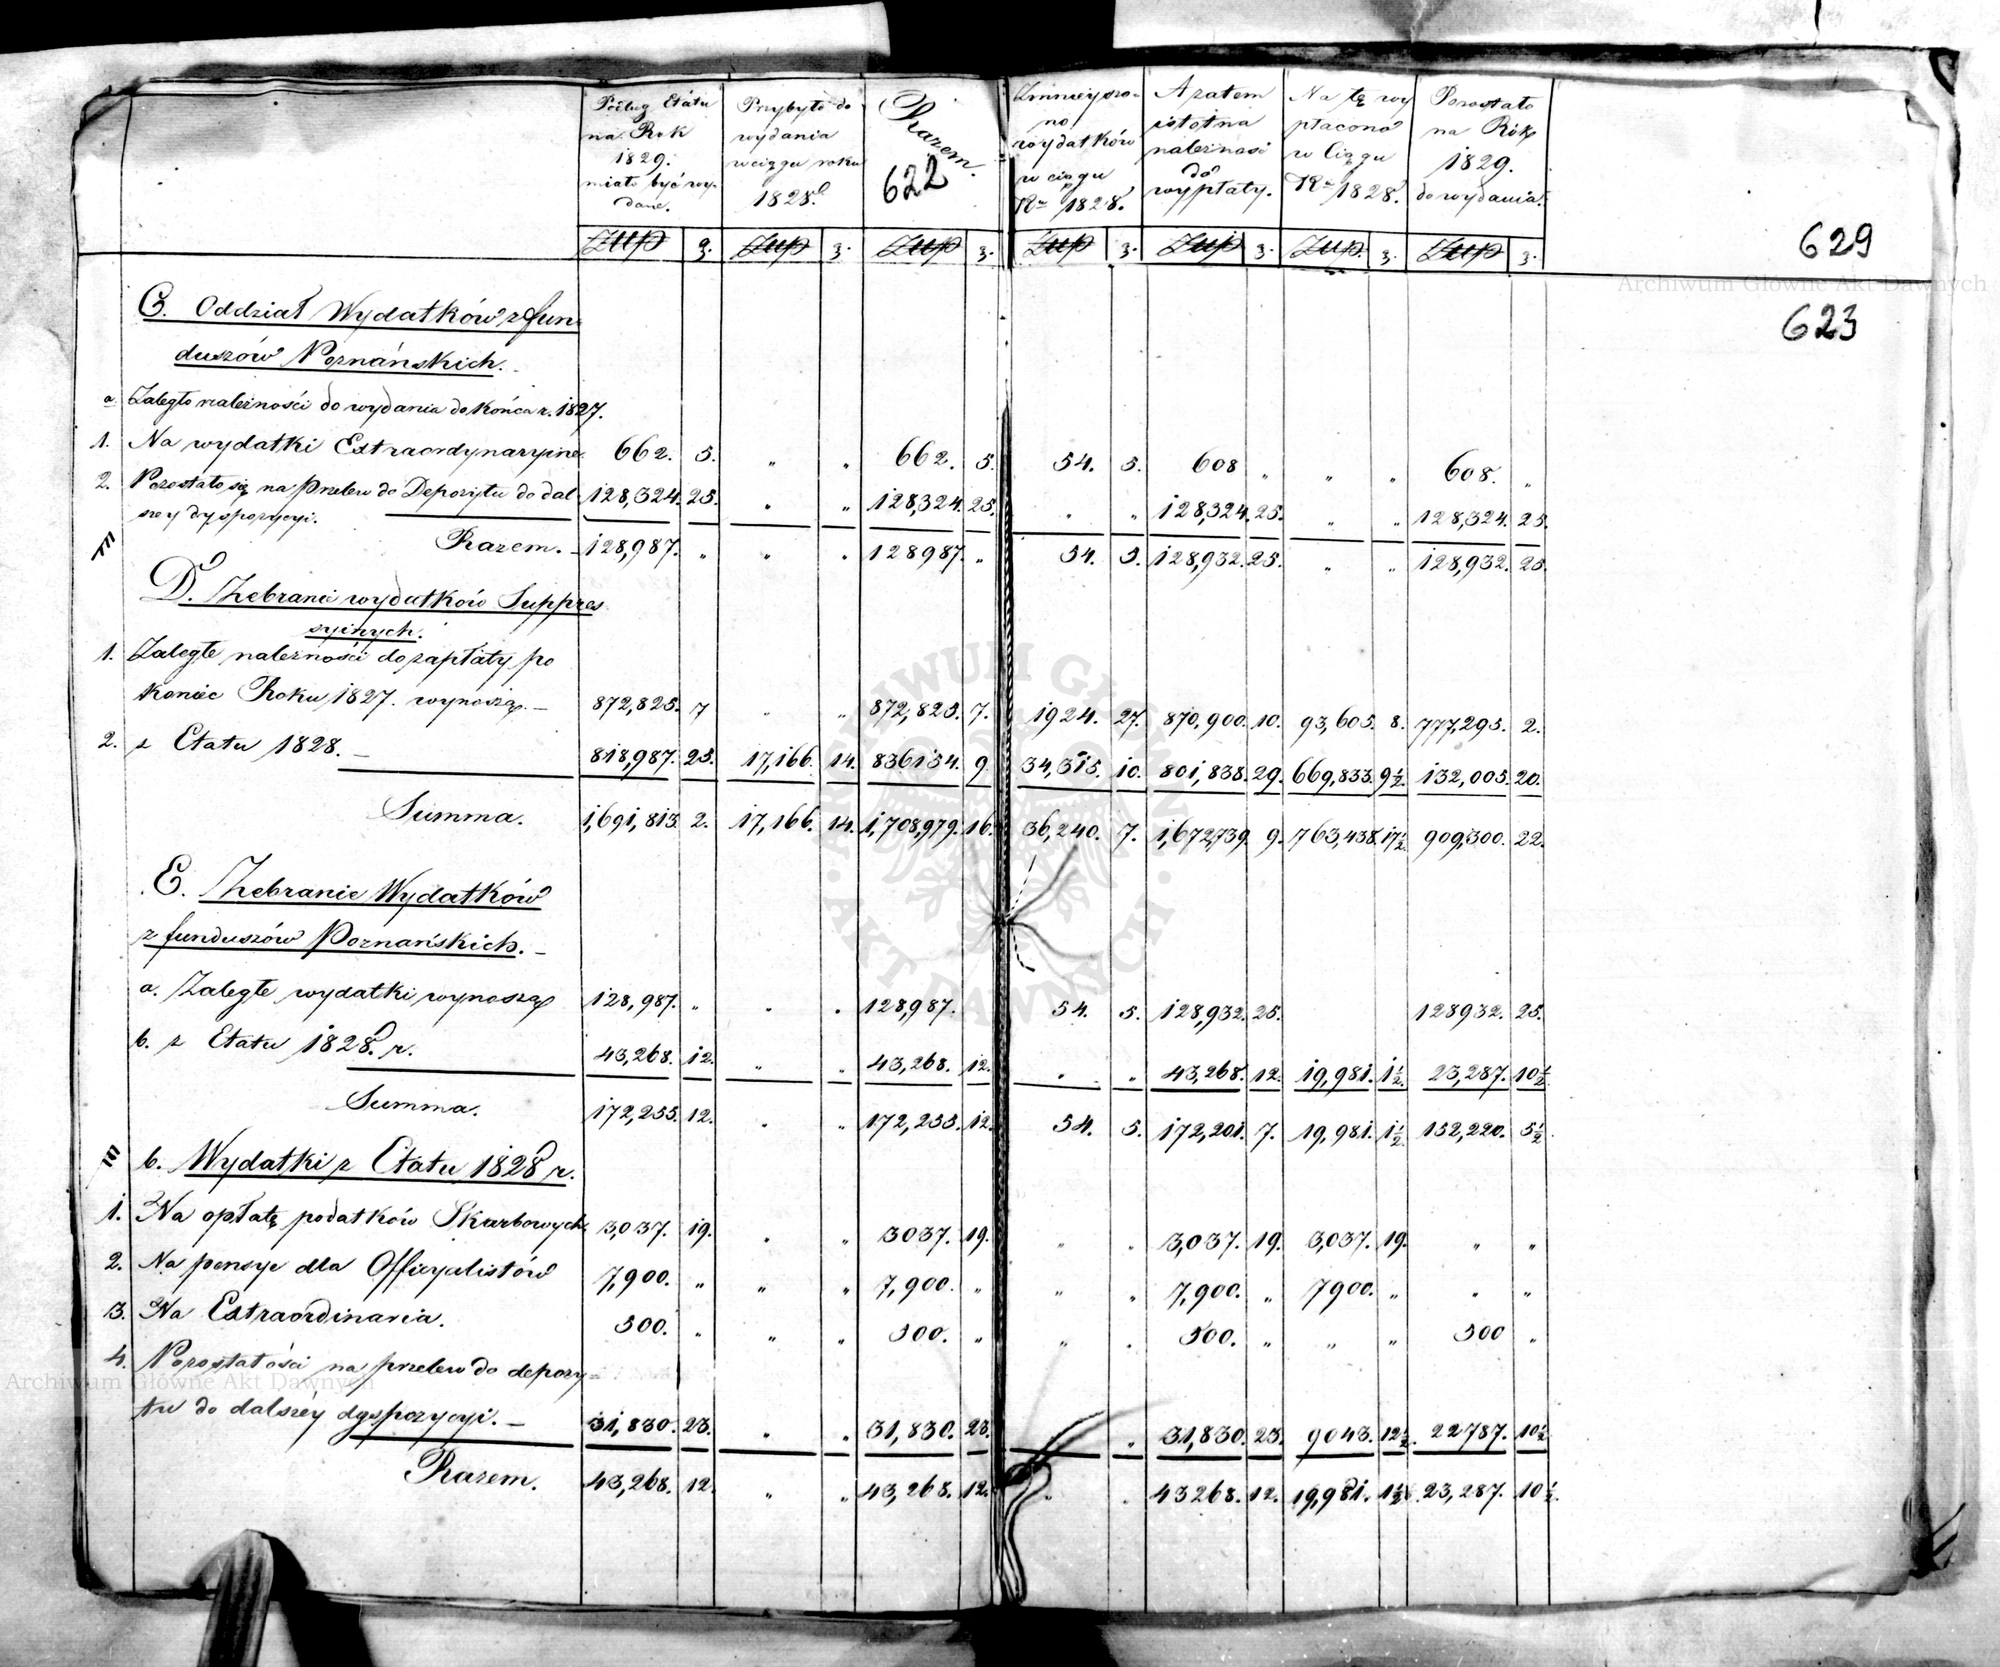 Podług Etatu na Rok 1829. miało być wydane.
Przybyło do wydania w ciągu roku 1828.
Razem.
622
Zmnieyszono wydatków w ciągu Ru 1828.
A zatem istotna należność do wypłaty.
Na tę wypłacono w Ciągu Ru 1828.
Pozostało na Rok 1829. do wydania.
629
Archiwum Główne Akt Dawnych
623
C. Oddział Wydatków z fun
duszów Poznańskich.
a. Zaległe należności do wydania do końca r. 1827.
1. Na wydatki Extraordynaryine 662. 5. " " 662. 5. 54. 5. 608 " " " 608. "
2. Pozostało się na przelew do Depozytu do dal 128,324. 25. " " 128,324. 25. " " 128,324. 25. " " 128,324. 25.
szey dyspozycyi.
Razem. 128,987. " " " 128987. " 54. 5. 128,932. 25. " " 128,932. 25.
D. Zebranie wydatków Suppres
syinych.
1. Zaległe należności do zapłaty po
koniec Roku 1827. wynoszą. 872,825. 7 " " 872,825. 7. 1924. 27. 870,900. 10. 93,605. 8. 777,295. 2.
2. z Etatu 1828. 818,987. 25. 17,166. 14. 836154. 9 34,315. 10. 801,838. 29. 669,833. 9½ 132,005. 20.
Summa. 1,691,813 2. 17,166. 14. 1,708,979. 16. 36,240. 7. 1,672,739. 9. 763,438. 17½ 909,300. 22.
E. Zebranie Wydatków
z funduszów Poznańskich.
a. Zaległe wydatki wynoszą 128,987. " " " 128,987. 54. 5. 128,932. 25. 128932. 25.
b. z Etatu 1828. r. 43,268. 12. " " 43,268. 12. " " 43,268. 12. 19,981. 1½ 23,287. 10½
Summa. 172,255. 12. " " 172,255. 12. 54. 5. 172,201. 7. 19,981. 1½ 152,220. 5½
b. Wydatki z Etatu 1828 r.
1. Na opłatę podatków Skarbowych 3,037. 19. " " 3037. 19. " " 3,037. 19. 3,037. 19. " "
2. Na pensye dla Officyalistów 7,900. " " " 7,900. " " " 7,900. " 7900. " " "
3. Na Extraordinaria. 500. " " " 500. " " " 500. " " " 500 "
4. Pozostałości na przelew do depozy
tu do dalszéy dyspozycyi. 31,830. 23. " " 31,830. 23. " 31,830. 23. 9043. 12½. 22787. 10½
Razem. 43,268. 12. " " 43,268. 12. " " 43268. 12. 19,981. 1½. 23,287. 10½.
Archiwum Główne Akt Dawnych
ARCHIWUM GŁÓWNE AKT DAWNYCH